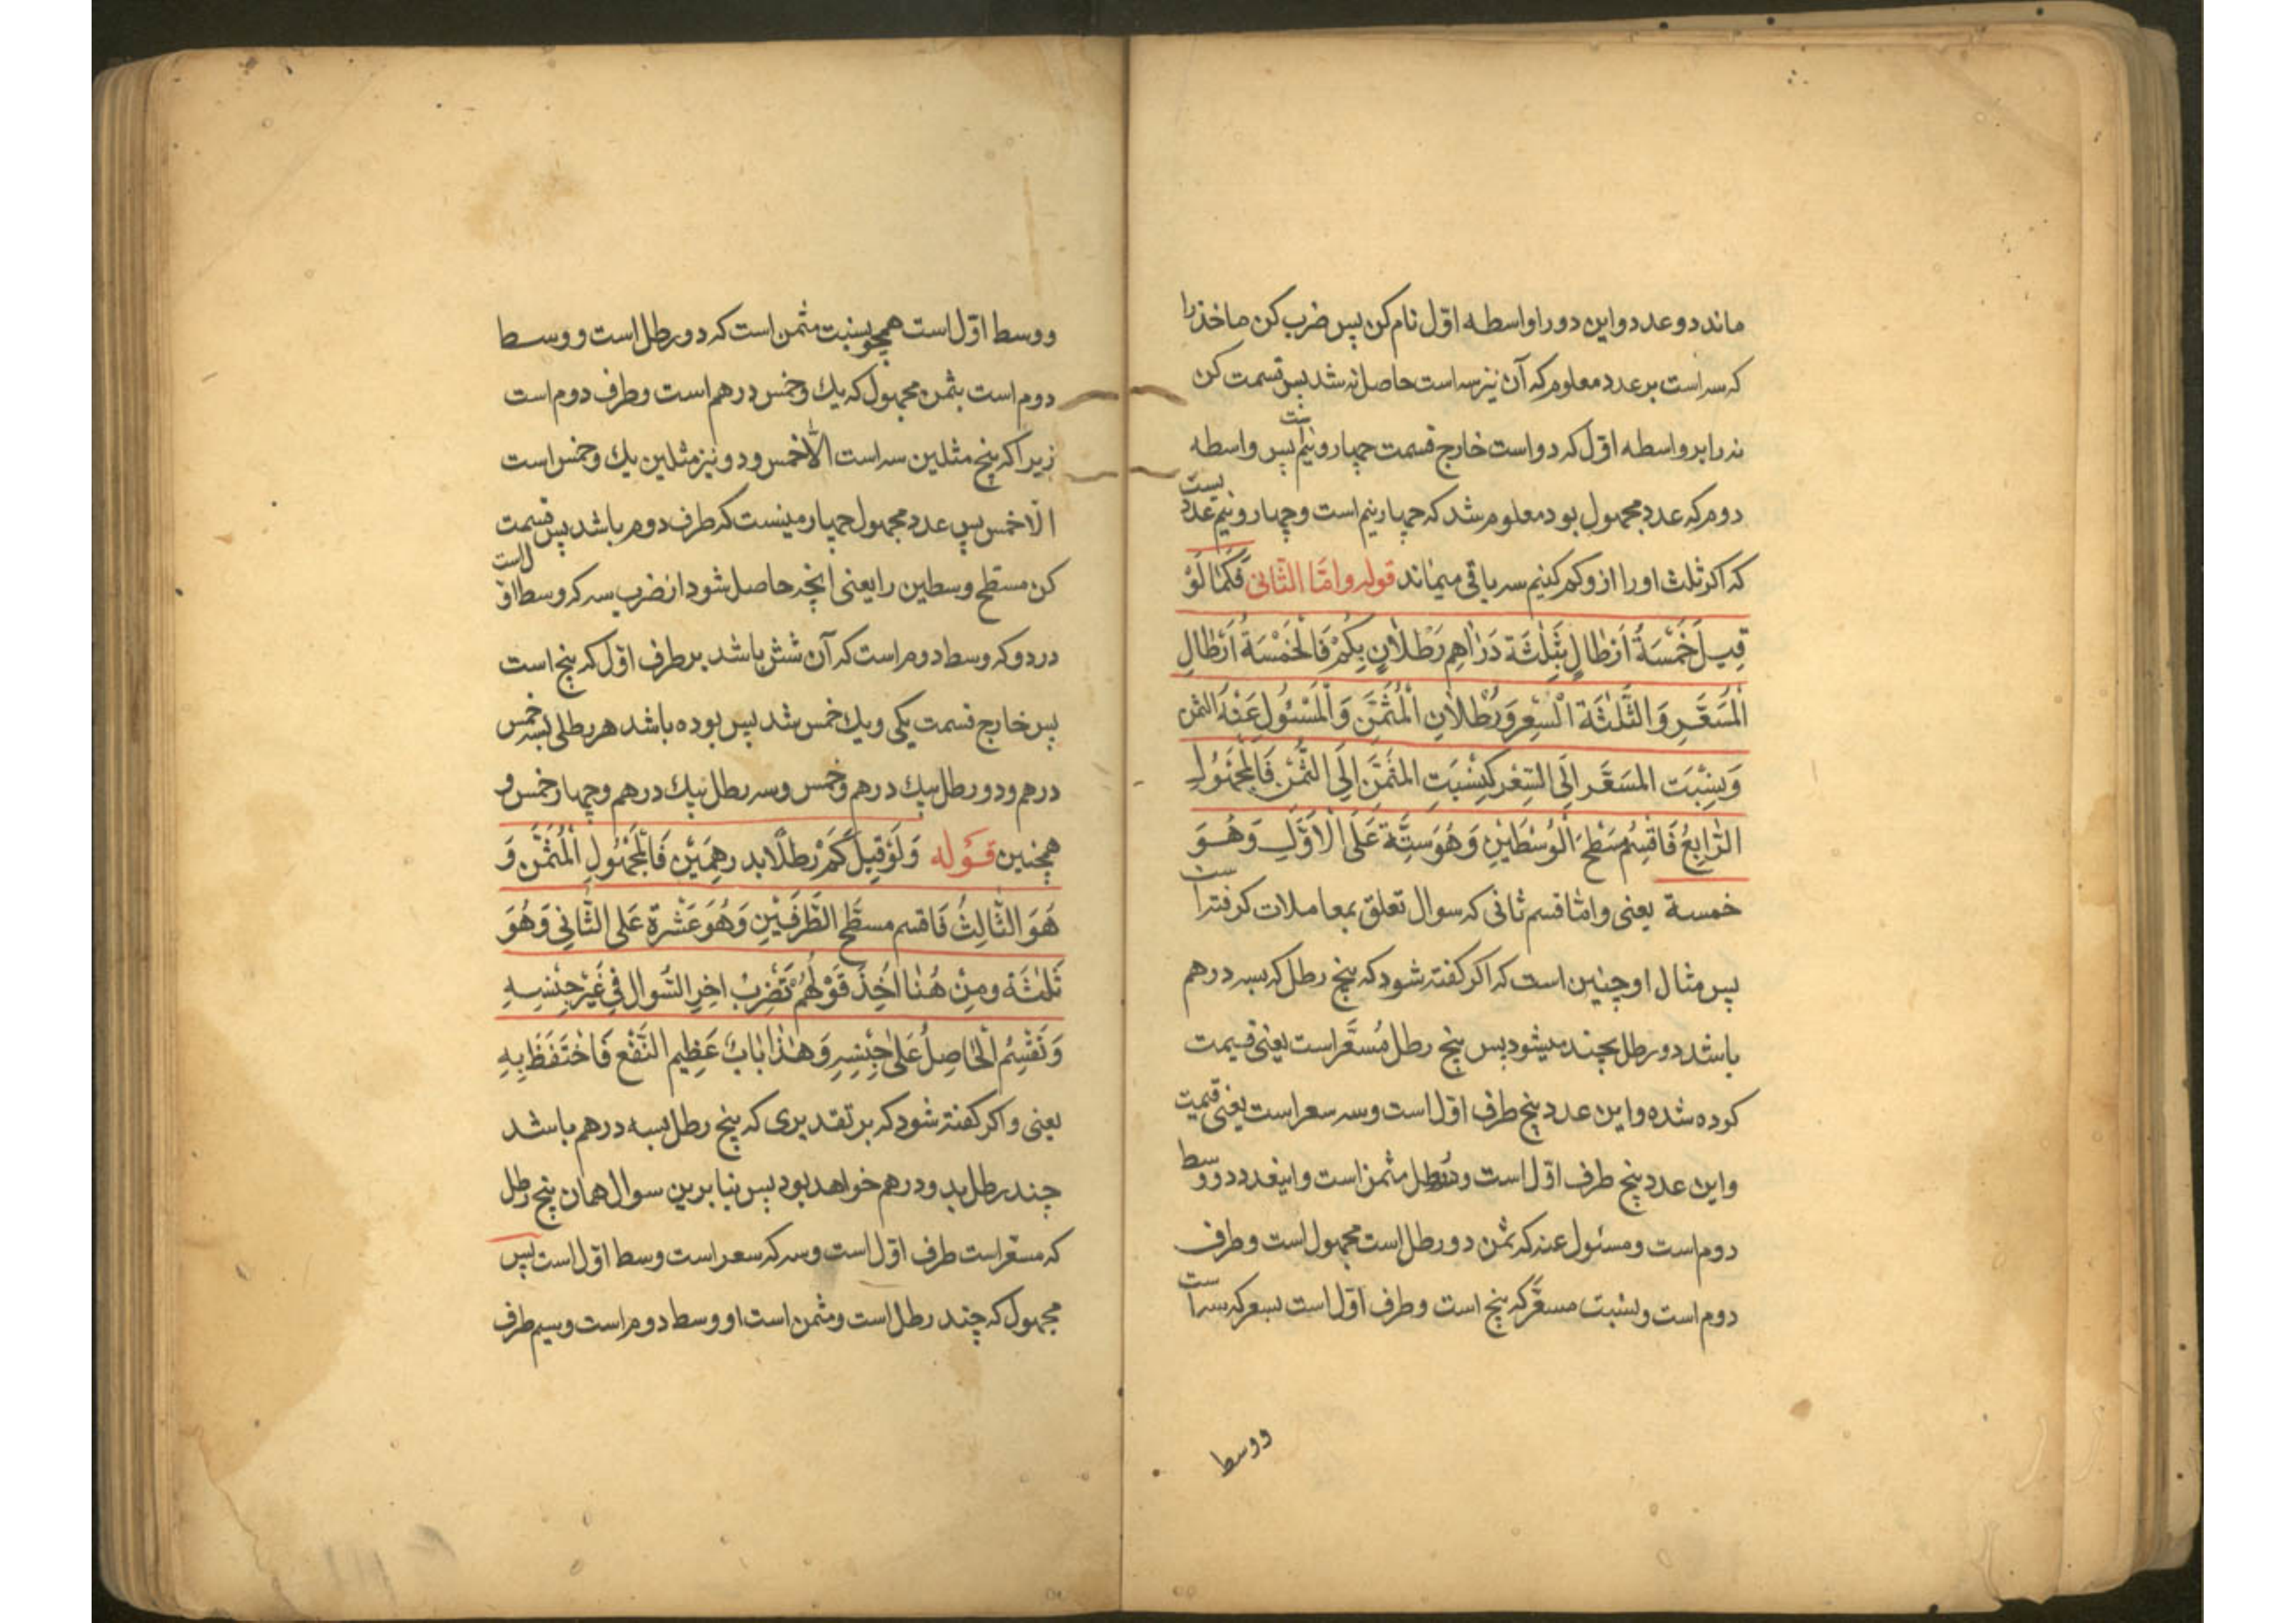 ماند دو عدد و این دو را واسطه اوّل نام کن پس ضرب کن ماخذ را
که سه است بر عدد معلوم که آن نیز سه است حاصل نه شد پس قسمت کن
نه را بر واسطه اوّل که دو است خارج قسمت چهار و نیم است پس واسطه
دوم که عدد مجهول بود معلوم شد که چهار نیم است و چهار و نیم عددیست
که اکر ثلث او را از و کم کنیم سه باقی میماند قوله وامّا الثّانی فَكَمَا لَوْ
قِيلَ خَمْسَةُ اَرْطَالٍ بِثَلٰثَة دَرَاهِم رَطْلَانِ بِكَمْ فَالْخَمْسَةُ اَرْطَالِ
الْمُسَعَّرِ وَالثَّلٰثَة السِّعِر وَرُطْلَانِ الْمُثَمَّنَ وَالْمَسْئُول عَنْهُ الثمن
وَنِسْبَت المسَعَّر اِلَى السِّعْر كَنِسْبَتِ المثمَّنَ اِلَى الثَّمَن فَالْمَجْهُولِ
الرَّابِعُ فَاقْسِمْ مَسْطَحَ الْوُسْطَيْنِ وَهُوَ سِتَّة عَلَى الْاَوَّلِ وَهُوَ
خمسة یعنی وامّا قسم ثانی که سوال تعلق بمعاملات کرفته است
پس مثال او چنین است که اکر کفته شود که پنج رطل که بسه درهم
باشد دو رطل بچند میشود پس پنج رطل مُسَعَّر است یعنی قیمت
کوده شده و این عدد پنج طرف اوّل است و سه سعر است یعنی قیمت
و این عدد پنج طرف اوّل است و دو رطل مثمن است و اینعدد دو وسط
دوم است و مسئول عنه که ثمن دو رطل است مجهول است و طرف
دوم است و نسبت مسعّر که پنج است و طرف اوّل است بسعر که سه است
ووسط
و وسط اوّل است همچو نسبت مثمن است که دو رطل است و وسط
دوم است بثمن مجهول که یك و خمس درهم است و طرف دوم است
زیرا که پنج مثلین سه است الّا خمس و دو نیز مثلین یك و خمس است
الّا خمس پس عدد مجهول چهار مینست که طرف دوم باشد پس قسمت
کن مسطح وسطین را یعنی انچه حاصل شود از ضرب سه که وسط اوّل است
در دو که وسط دوم است که آن شش باشد بر طرف اوّل که پنج است
پس خارج قسمت یکی و یك خمس شد پس بوده باشد هر رطلی بسه خمس
درهم و دو رطل بیك درهم و خمس و سه رطل بیك درهم و چهار خمس و
همچنین قوله وَلَوْ قِيلَ كَمْ رَطْلًا بدرهِمَيْن فَالْمَجْهُولِ الْمُثَمَّن وَ
هُوَ الثَّالِثُ فَاقسم مسطَّح الطَّرَفَيْنِ وَهُوَ عَشْرَة عَلَى الثَّانِي وَهُوَ
ثَلٰثَة ومِنْ هُنَا اُخِذَ قَوْلُهُمْ تَضْرِبُ اخِرِ السُّوال فِي غَيْرِ جِنْسِهِ
وَتَقْسِمُ الْحَاصِلُ عَلَى جِنْسِهِ وَهٰذَا بَابُ عَظِيم النَّفْع فَاحْتَفَظَ بِهِ
یعنی و اکر کفته شود که بر تقدیری که پنج رطل بسه درهم باشد
چند رطل بدو درهم خواهد بود پس بنا برین سوال همان پنج رطل
که مسعّر است طرف اوّل است و سه که سعر است وسط اوّل است پس
مجهول که چند رطل است و مثمن است او وسط دوم است و سیم طرف